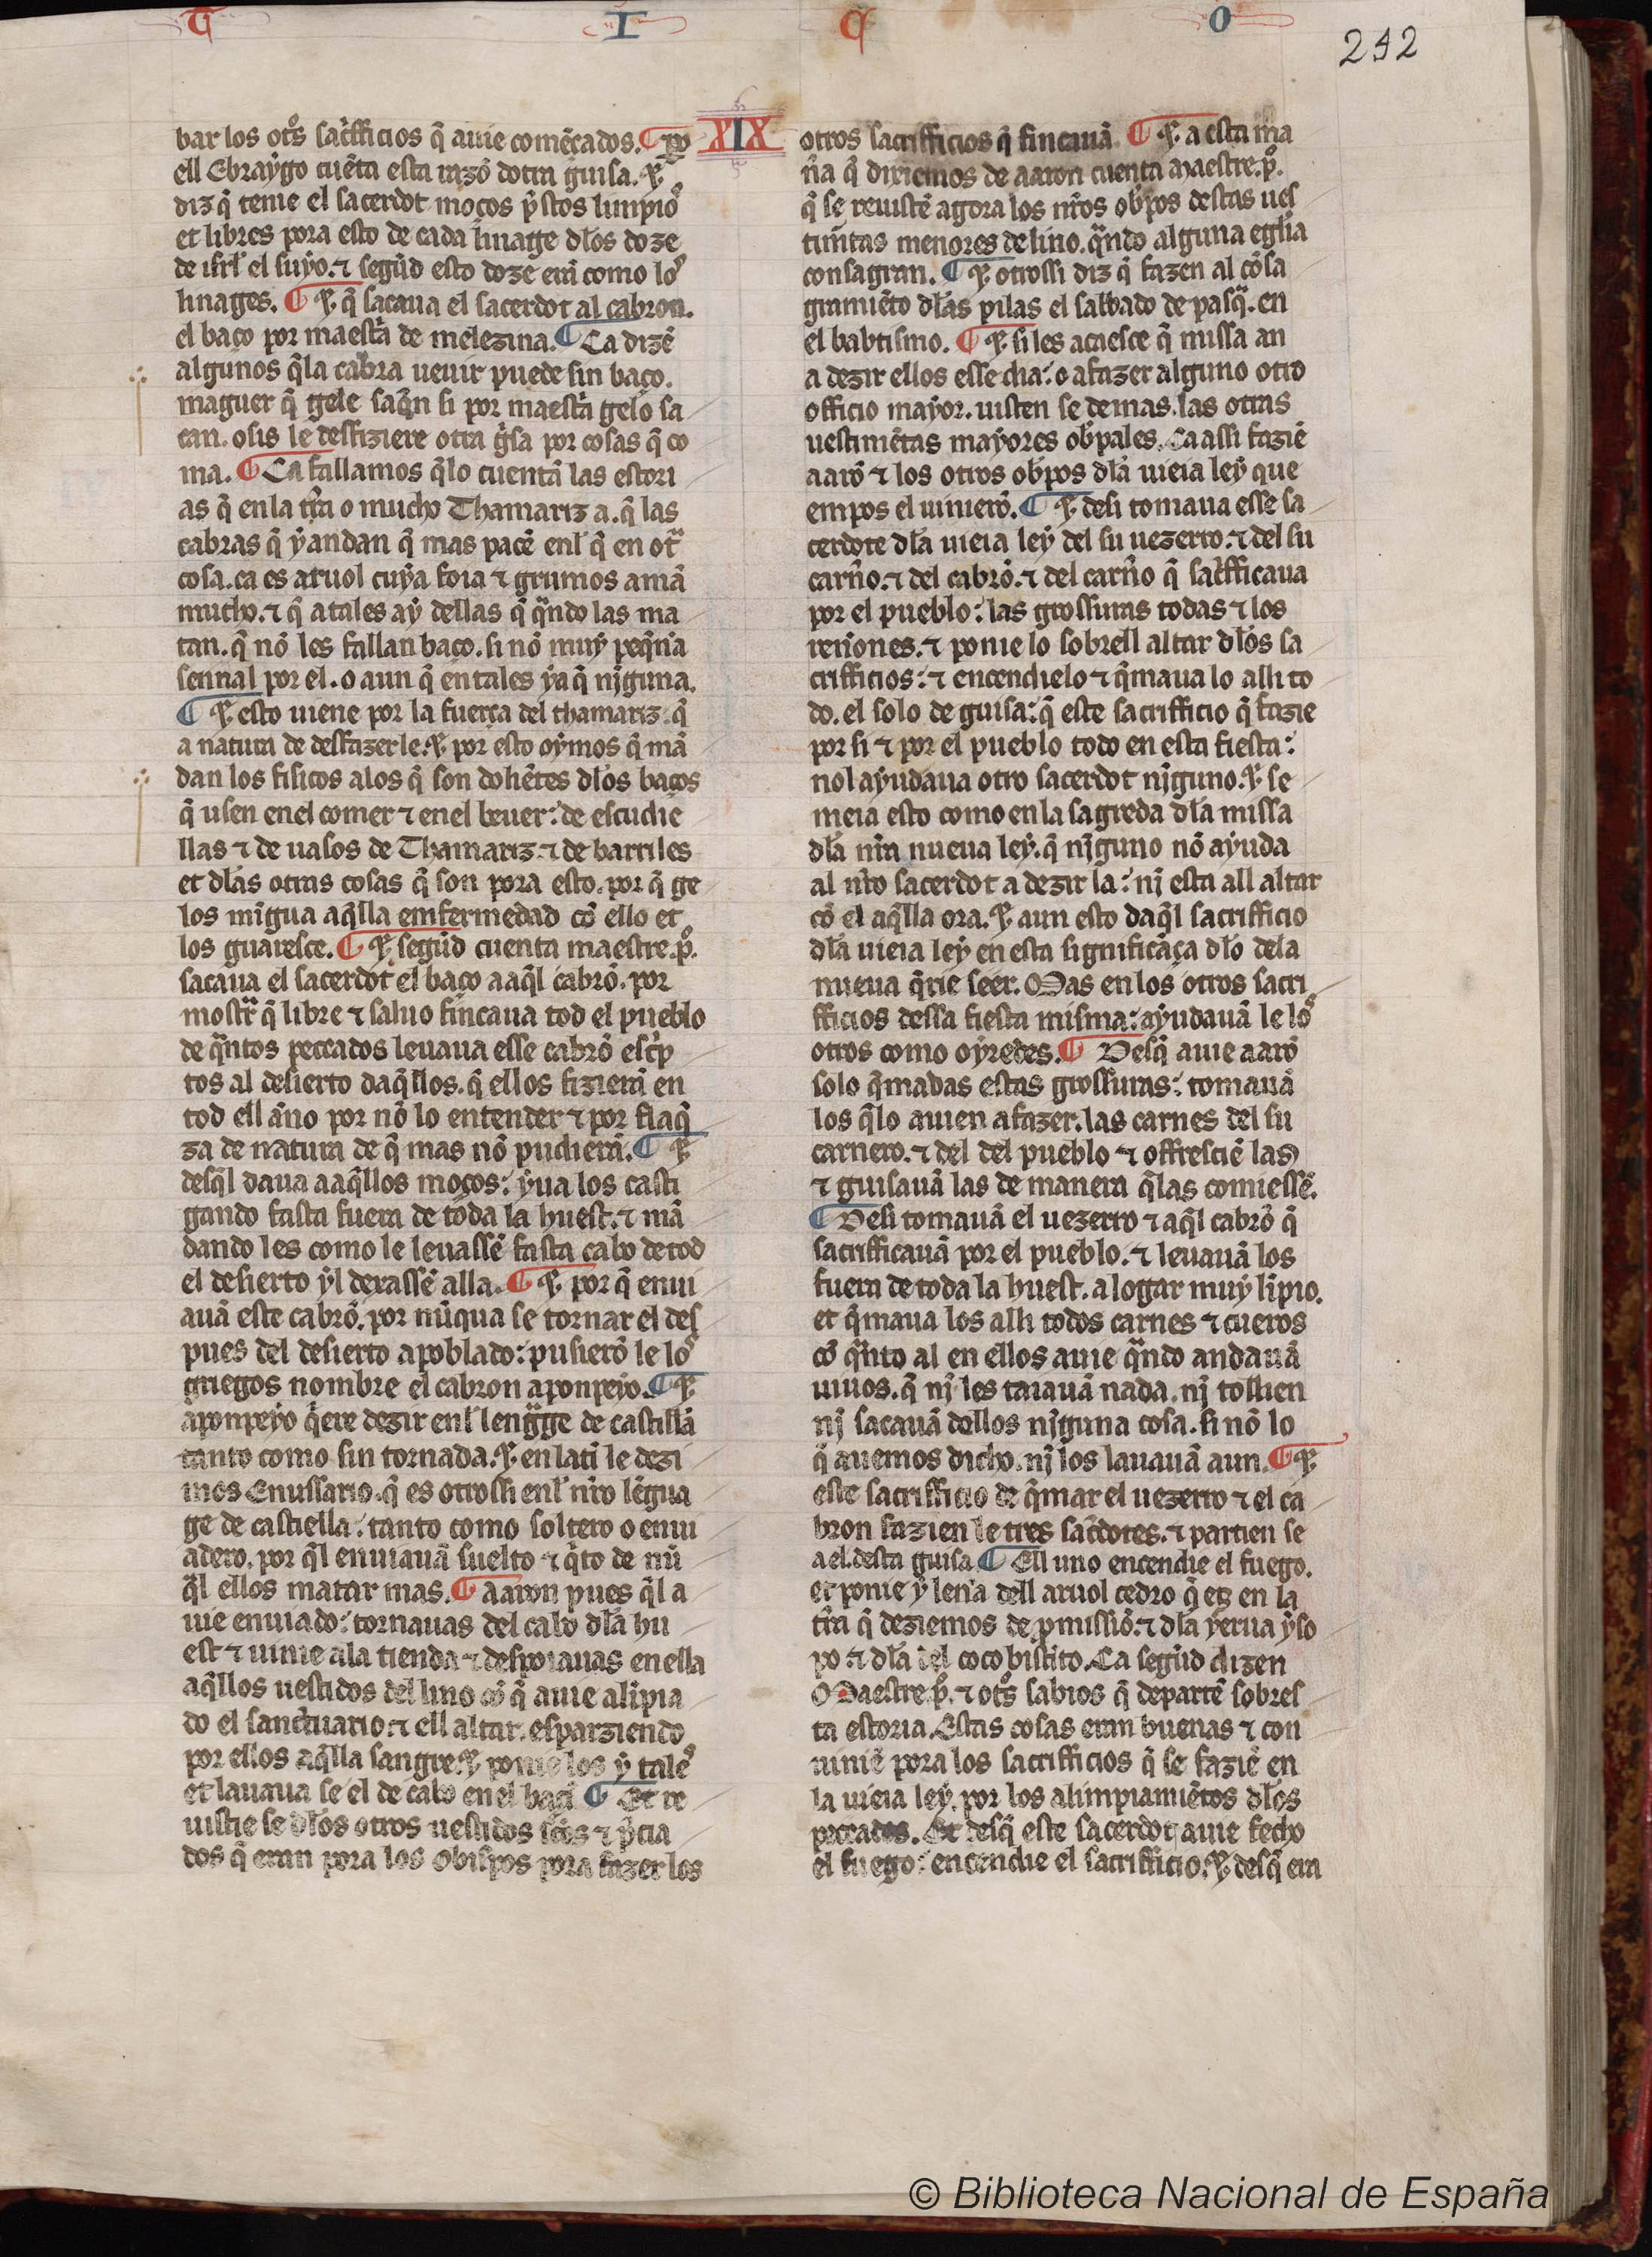 ¶ I ¶ O
252
XIX
bar los otͦs sac̃fficios q̃ auie comẽçados. ¶ Po
ell Ebraẏgo cuẽta esta razõ dotra guisa. ⁊
diz q̃ tenie el sacerdot moços ẏ stos limpiọͦ
et libres pora esto de cada linage dłos doze
de isrł el suẏo. ⁊ segũd esto doze erã como loͦ
linages. ¶ ⁊ q̃ sacaua el sacerdot al cabron.
el baço por maestã de melezina. ¶ Ca dizẽ
algunos q̃la cabra ueuir puede sin baço.
maguer q̃ gele saq̃n si por maestã gelo sa
can. o sis le desfiziere otra g̃sa por cosas q̃ co
ma. ¶ Ca fallamos q̃lo cuentã las estori
as q̃ en la tr̃ra o mucho Thamariz a. q̃ las
cabras q̃ ẏ andan q̃ mas pacẽ enł q̃ en otᷓ
cosa. ca es aruol cuẏa foia ⁊ grumos amã
mucho. ⁊ q̃ a tales aẏ dellas q̃ qᷓndo las ma
tan. q̃ nõ les fallan baço. si nõ muẏ peq̃na
sennal por el. o aun q̃ en tales ẏa q̃ nj̃guna.
¶ ⁊ esto uiene por la fuerça del thamariz. q̃
a natura de desfazerle. ⁊ por esto oẏmos q̃ mã
dan los fisicos alos q̃ son dolẽtes dłos baços
q̃ usen en el comer ⁊ en el beuer: de escudie
llas ⁊ de uasos de Thamariz. ⁊ de barriles
et dłas otras cosas q̃ son pora esto. por q̃ ge
los mĩgua aq̃lla enfermedad cõ ello et
los guaresce. ¶ ⁊ segũd cuenta maestre .pͦ.
sacaua el sacerdot el baço a aq̃l cabrõ. por
mostrᷓ q̃ libre ⁊ saluo fincaua tod el pueblo
de qᷓntos peccados leuaua esse cabrõ esc̃p
tos al desierto daq̃llos. q̃ ellos fizierã en
tod ell ãno por nõ lo entender ⁊ por flaq̃
za de natura de q̃ mas nõ pudierã. ¶ ⁊
desq̃l daua a aq̃llos moços: ẏua los casti
gando fasta fuera de toda la huest. ⁊ mã
dando les como le leuassẽ fasta cabo de tod
el desierto ẏl dexassẽ alla. ¶ ⁊ por q̃ enui
auã este cabrõ. por nũqua se tornar el des
pues del desierto a poblado: pusierõ le loͦ
griegos nombre el cabron aponpeẏo. ¶ ⁊
aponpeẏo q̃ere dezir enł lengᷓge de castiłła
tanto como sin tornada. ⁊ en latĩ le dezi
mos Emissario. q̃ es otrossi enł nr̃o lẽgua
ge de castiella: tanto como soltero o enui
adero. por q̃l enuiauã suelto ⁊ q̃to de nũ
q̃l ellos matar mas. ¶ aaron pues q̃l a
uie enuiado: tornauas del cabo dła hu
est ⁊ uinie ala tienda ⁊ despoiauas en ella
aq̃llos uestidos del lino cõ q̃ auie alĩpia
do el sanctuario. ⁊ ell altar. esparziendo
por ellos aq̃lla sangre. ⁊ ponie los ẏ taleͦ
et lauaua se el de cabo en el bacĩ. ¶ Et re
uistie se dłos otros uestidos sc̃os ⁊ p̃cia
dos q̃ eran pora los obispos pora fazer los
otros sacrifficios q̃ fincauã. ¶ ⁊ a esta ma
ñra q̃ diziemos de aaron cuenta maestre .pͦ.
q̃ se reuistẽ agora los nr̃os ob̃pos destas ues
tim̃tas menores de lino. qᷓndo alguna eglĩa
consagran. ¶ ⁊ otrossi diz q̃ fazen al cõsa
gramiẽto dłas pilas el sabbado de pasqᷓ. en
el babtismo. ¶ ⁊ si les acaesce q̃ missa an
a dezir ellos esse dia: o a fazer alguno otro
officio mayor. uisten se demas. las otras
uestimẽtas mayores ob̃pales. Ca assi faziẽ
aarõ ⁊ los otros ob̃pos dła uieia leẏ que
empos el uinierõ. ¶ ⁊ desi tomaua esse sa
cerdote dła uieia leẏ del su uezerro. ⁊ del su
carñro. ⁊ del cabrõ. ⁊ del carñro q̃ sac̃fficaua
por el pueblo: las grossuras todas ⁊ los
renones. ⁊ ponie lo sobrell altar dłos sa
crifficios: ⁊ encendielo ⁊ q̃maua lo alli to
do. el solo de guisa: q̃ este sacrifficio q̃ fazie
por si ⁊ por el pueblo todo en esta fiesta:
nol aẏudaua otro sacerdot nj̃guno. ⁊ se
meia esto como en la sagreda dła missa
dła nr̃a nueua leẏ. q̃ nj̃guno nõ aẏuda
al nr̃o sacerdot a dezir la: nj esta all altar
cõ el aq̃lla ora. ⁊ aun esto daq̃l sacrifficio
dła uieia leẏ en esta significãça dło dela
nueua q̃rie seer. Mas en los otros sacri
fficios dessa fiesta misma: aẏudauã le loͦ
otros como oẏredes. ¶ Desq̃ auie aarõ
solo q̃madas estas grossuras: tomauã
los q̃lo auien a fazer. las carnes del su
carnero. ⁊ del del pueblo ⁊ offresciẽ las
⁊ guisauã las de manera q̃las comiessẽ.
¶ Desi tomauã el uezerro ⁊ aq̃l cabrõ q̃
sacrifficauã por el pueblo. ⁊ leuauã los
fuera de toda la huest. a logar muẏ lĩpio.
et q̃maua los alli todos carnes ⁊ cueros
cõ qᷓnto al en ellos auie qᷓndo andauã
uiuos. q̃ nj les taiauã nada. nj tollien
nj sacauã dellos nj̃guna cosa. si nõ lo
q̃ auemos dicho. nj los lauauã aun. ¶ ⁊
este sacrifficio de q̃mar el uezerro ⁊ el ca
bron fazien le tres sac̃dotes. ⁊ partien se
a el desta guisa ¶ Ell uno encendie el fuego.
et ponie ẏ lena dell aruol cedro q̃ es en la
tr̃ra q̃ deziemos de p̃missiõ. ⁊ dła ẏerua ẏso
po. ⁊ dła del coco bistito. Ca segũd dizen
Maestre .pͦ. ⁊ otͦs sabios q̃ departẽ sobres
ta estoria. Estas cosas eran buenas ⁊ con
uiniẽ pora los sacrifficios q̃ se faziẽ en
la uieia leẏ. por los alimpiamiẽtos dłos
peccados. Et desq̃ este sacerdot auie fecho
el fuego: encendie el sacrifficio. ⁊ desq̃ era
© Biblioteca Nacional de España